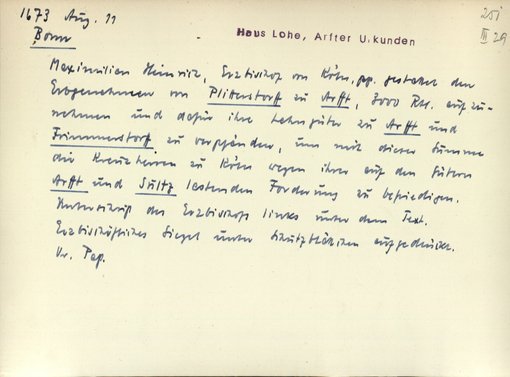 1673 Aug. 11
Bonn
Haus Lohe, Arfter Urkunden
25i
III 29
Maximilian Heinrich, Erzbischof von Köln, pp. gestattet den
Erbgenehmen von Plittersdorff zu Arfft, 3000 Rtl. aufzu-
nehmen und dafür ihre Lehngüter zu Arfft und
Frimmerstorff zu verpfänden, um mit dieser Summe
die Kreuzherren zu Köln wegen ihrer auf den Gütern
Arfft und Sültz lastenden Forderung zu befriedigen.
Unterschrift des Erzbischofs links unter dem Text.
Erzbischöfliches Siegel unter Schutzblättchen aufgedrückt.
Or. Pap.